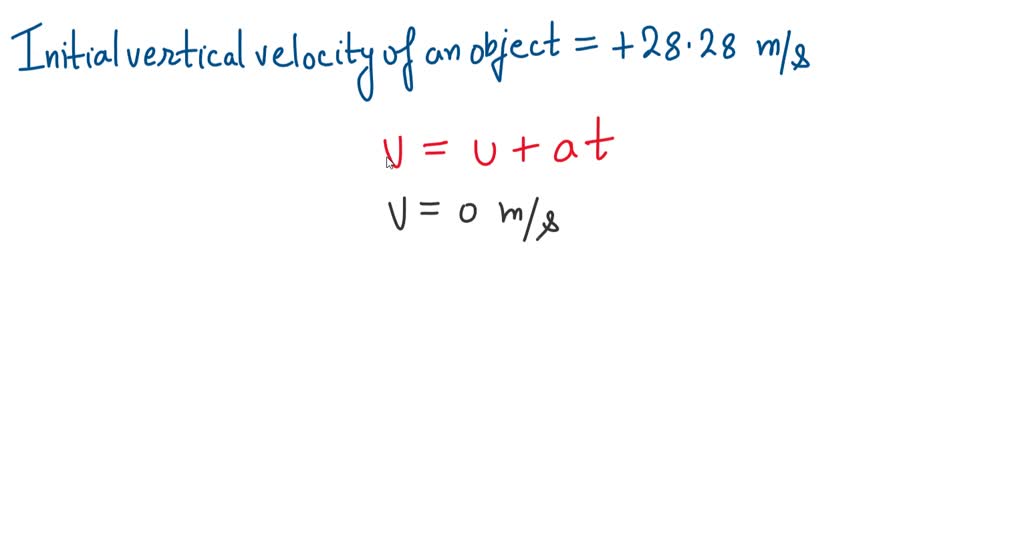 Initial vertical velocity of an object = +28.28 m/s
v = u + at
v = 0 m/s